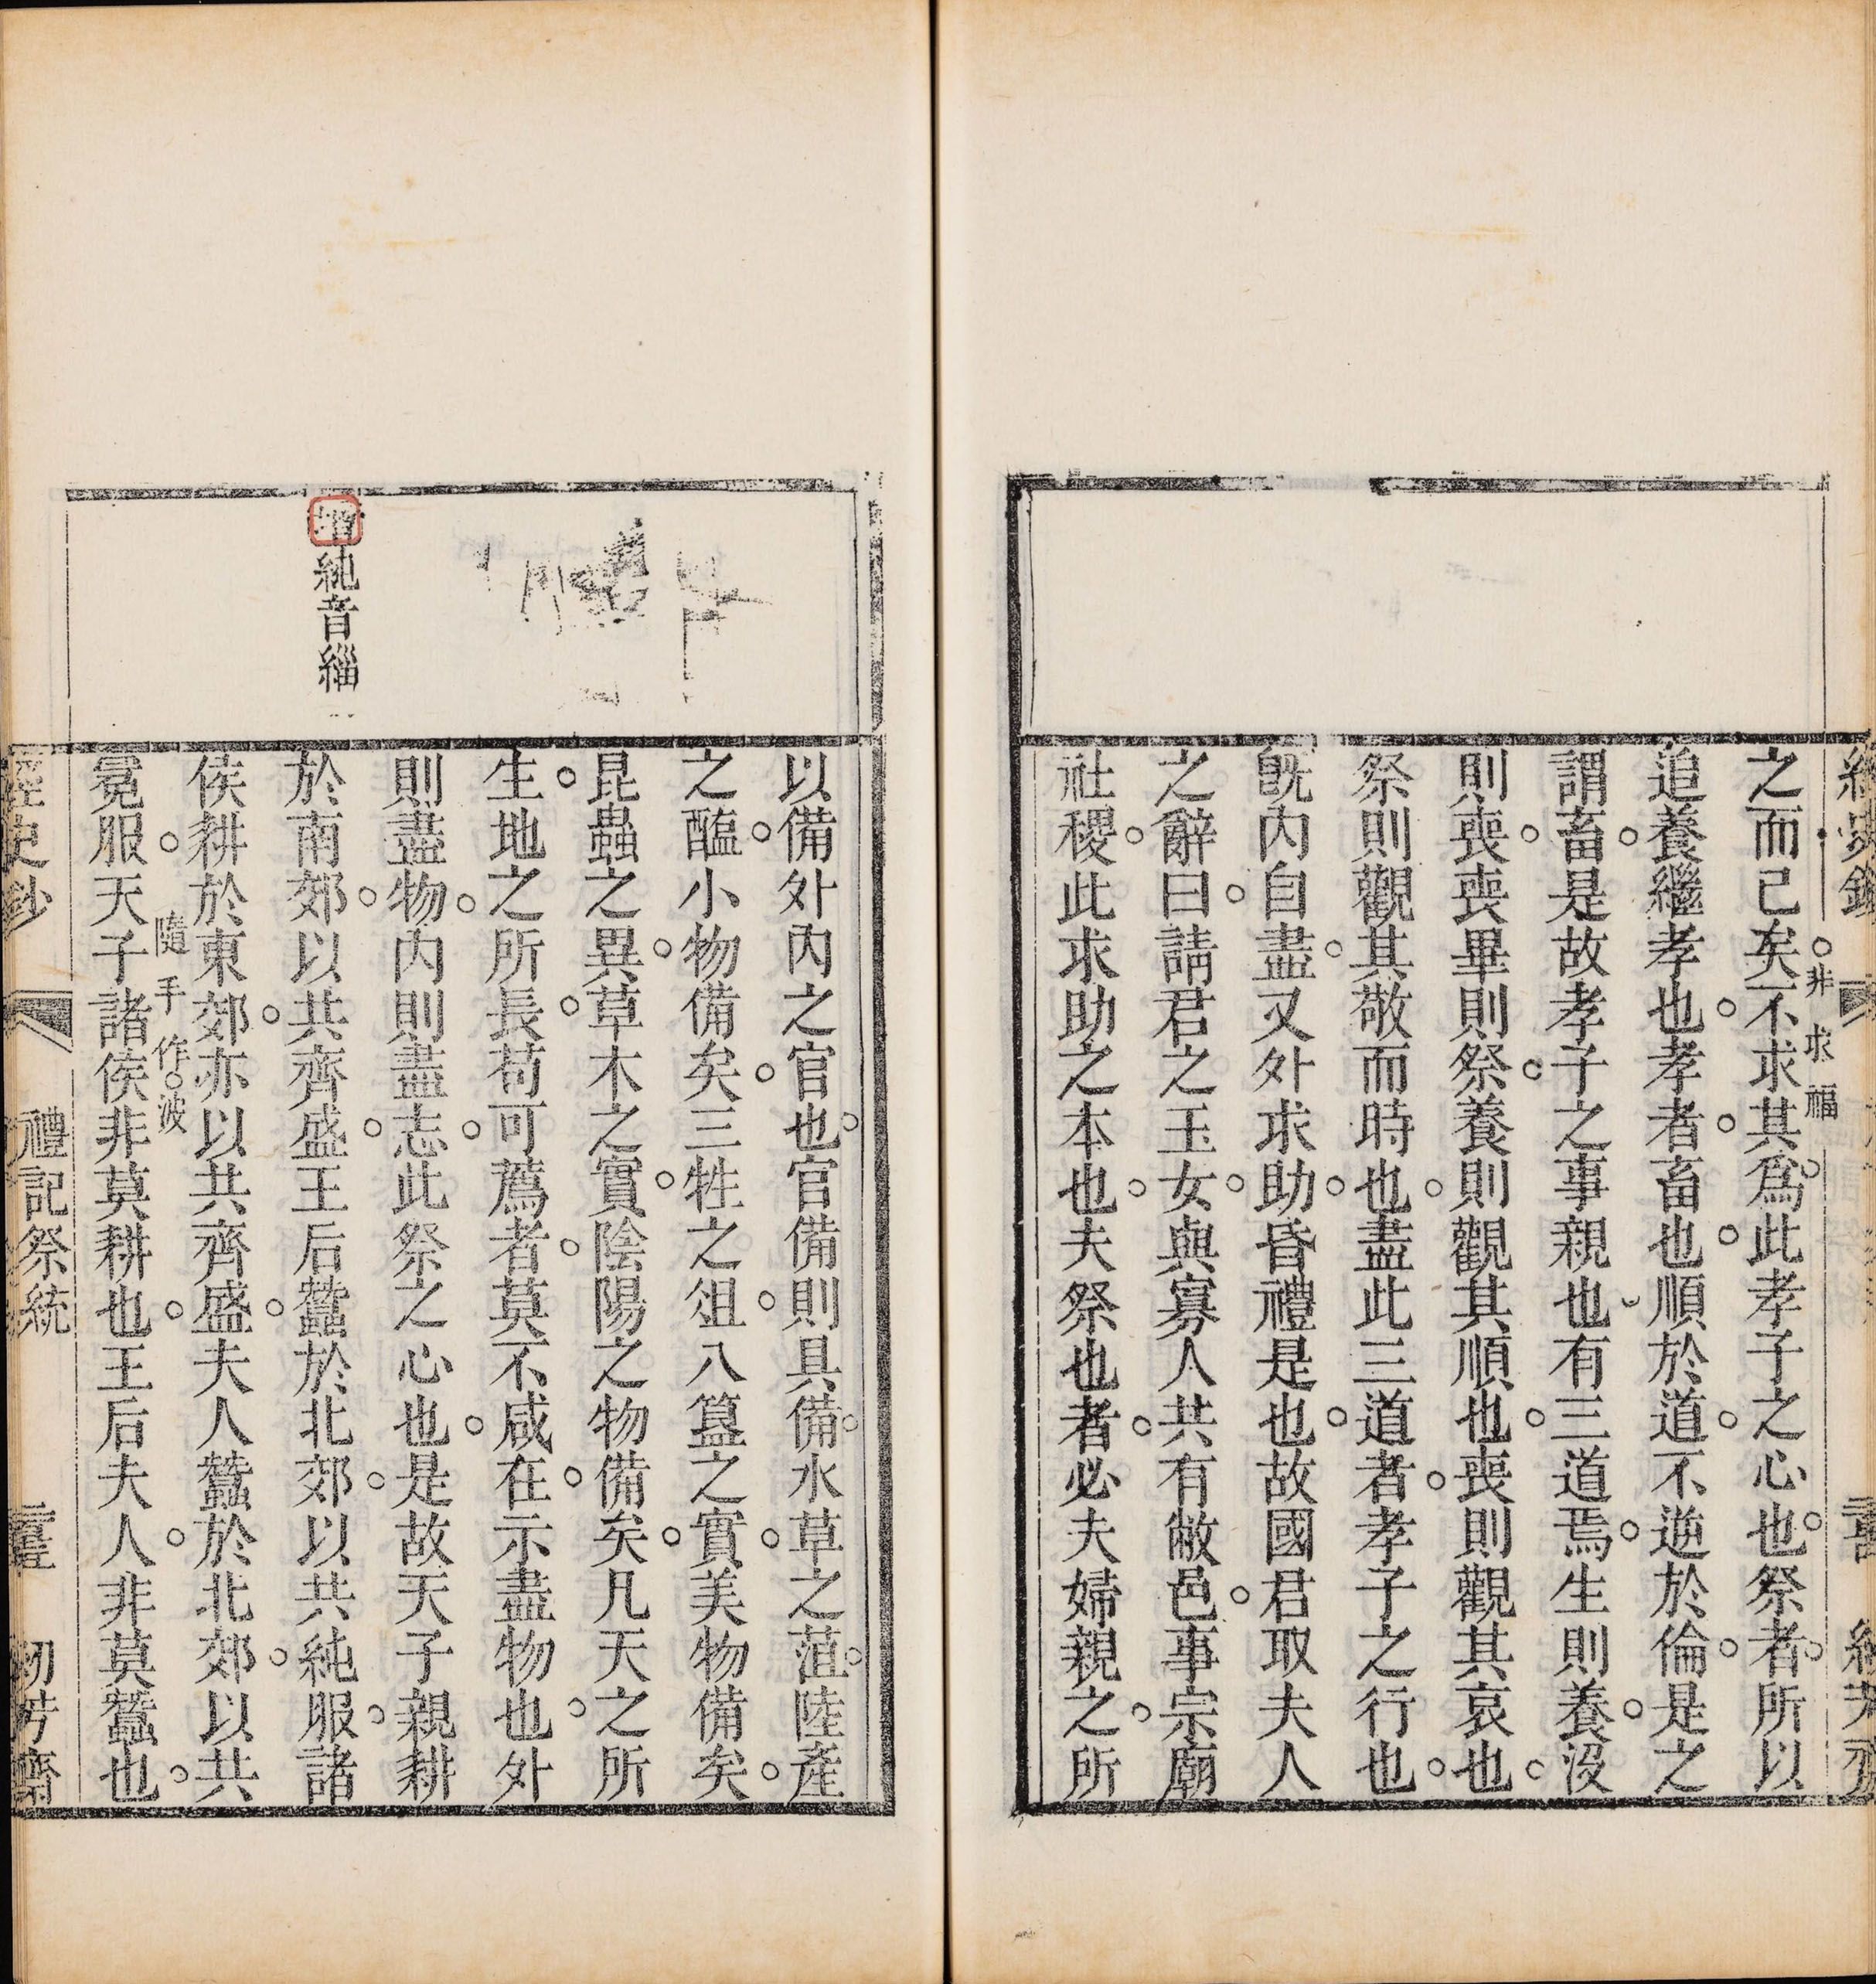 之而已矣不求其爲此孝子之心也祭者所以
非求福
追養繼孝也孝者畜也順於道不逆於倫是之
謂畜是故孝子之事親也有三道焉生則養沒
則喪喪畢則祭養則觀其順也喪則觀其哀也
祭則觀其敬而時也盡此三道者孝子之行也
旣內自盡又外求助昏禮是也故國君取夫人
之辭曰請君之玉女與寡人共有敝邑事宗廟
社稷此求助之本也夫祭也者必夫婦親之所
以備外內之官也官備則具備水草之菹陸產
之醢小物備矣三牲之俎八簋之實美物備矣
昆蟲之異草木之實陰陽之物備矣凡天之所
生地之所長苟可薦者莫不咸在示盡物也外
則盡物內則盡志此祭之心也是故天子親耕
純音緇
於南郊以共齊盛王后蠶於北郊以共純服諸
侯耕於東郊亦以共齊盛夫人蠶於北郊以共
隨手作波
冕服天子諸侯非莫耕也王后夫人非莫蠶也
經史鈔
禮記祭統